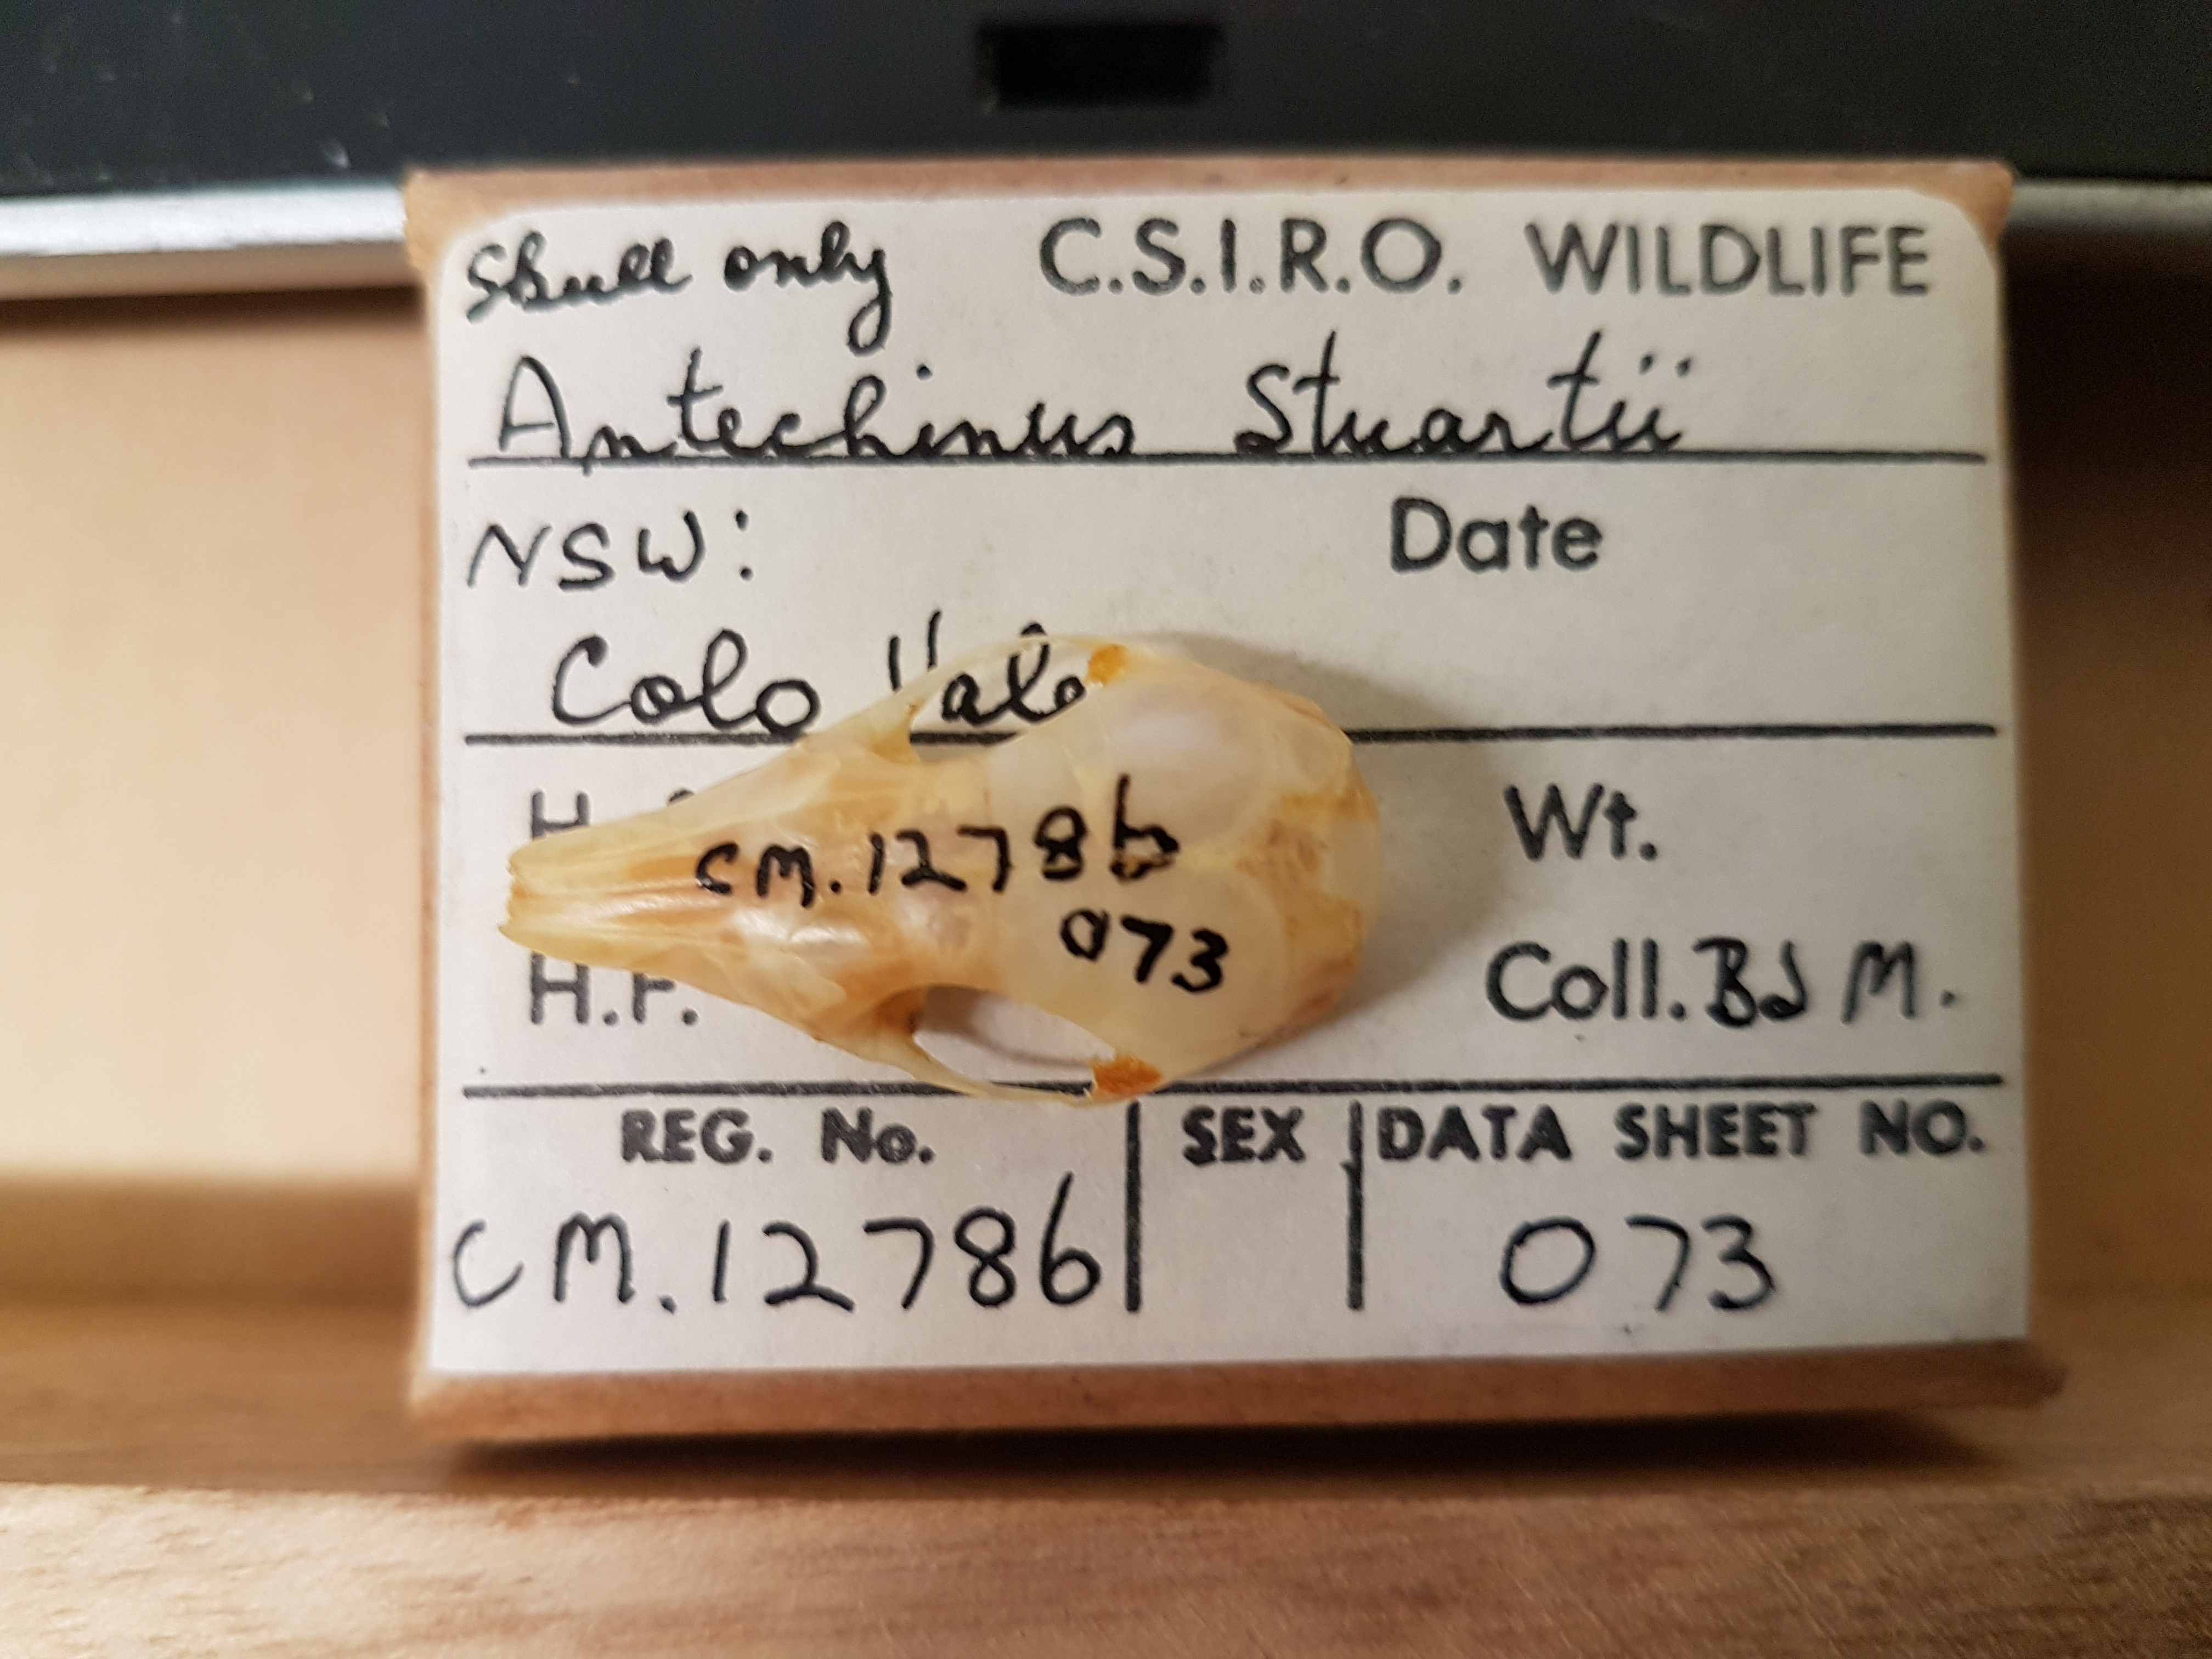 Skull only C.S.I.R.O. WILDLIFE
Antechinus Stuartii
NSW: Date
Colo
Wt.
H.F. Coll. BJM.
REG. No. SEX DATA SHEET NO.
CM.12786 073
CM.12786
073